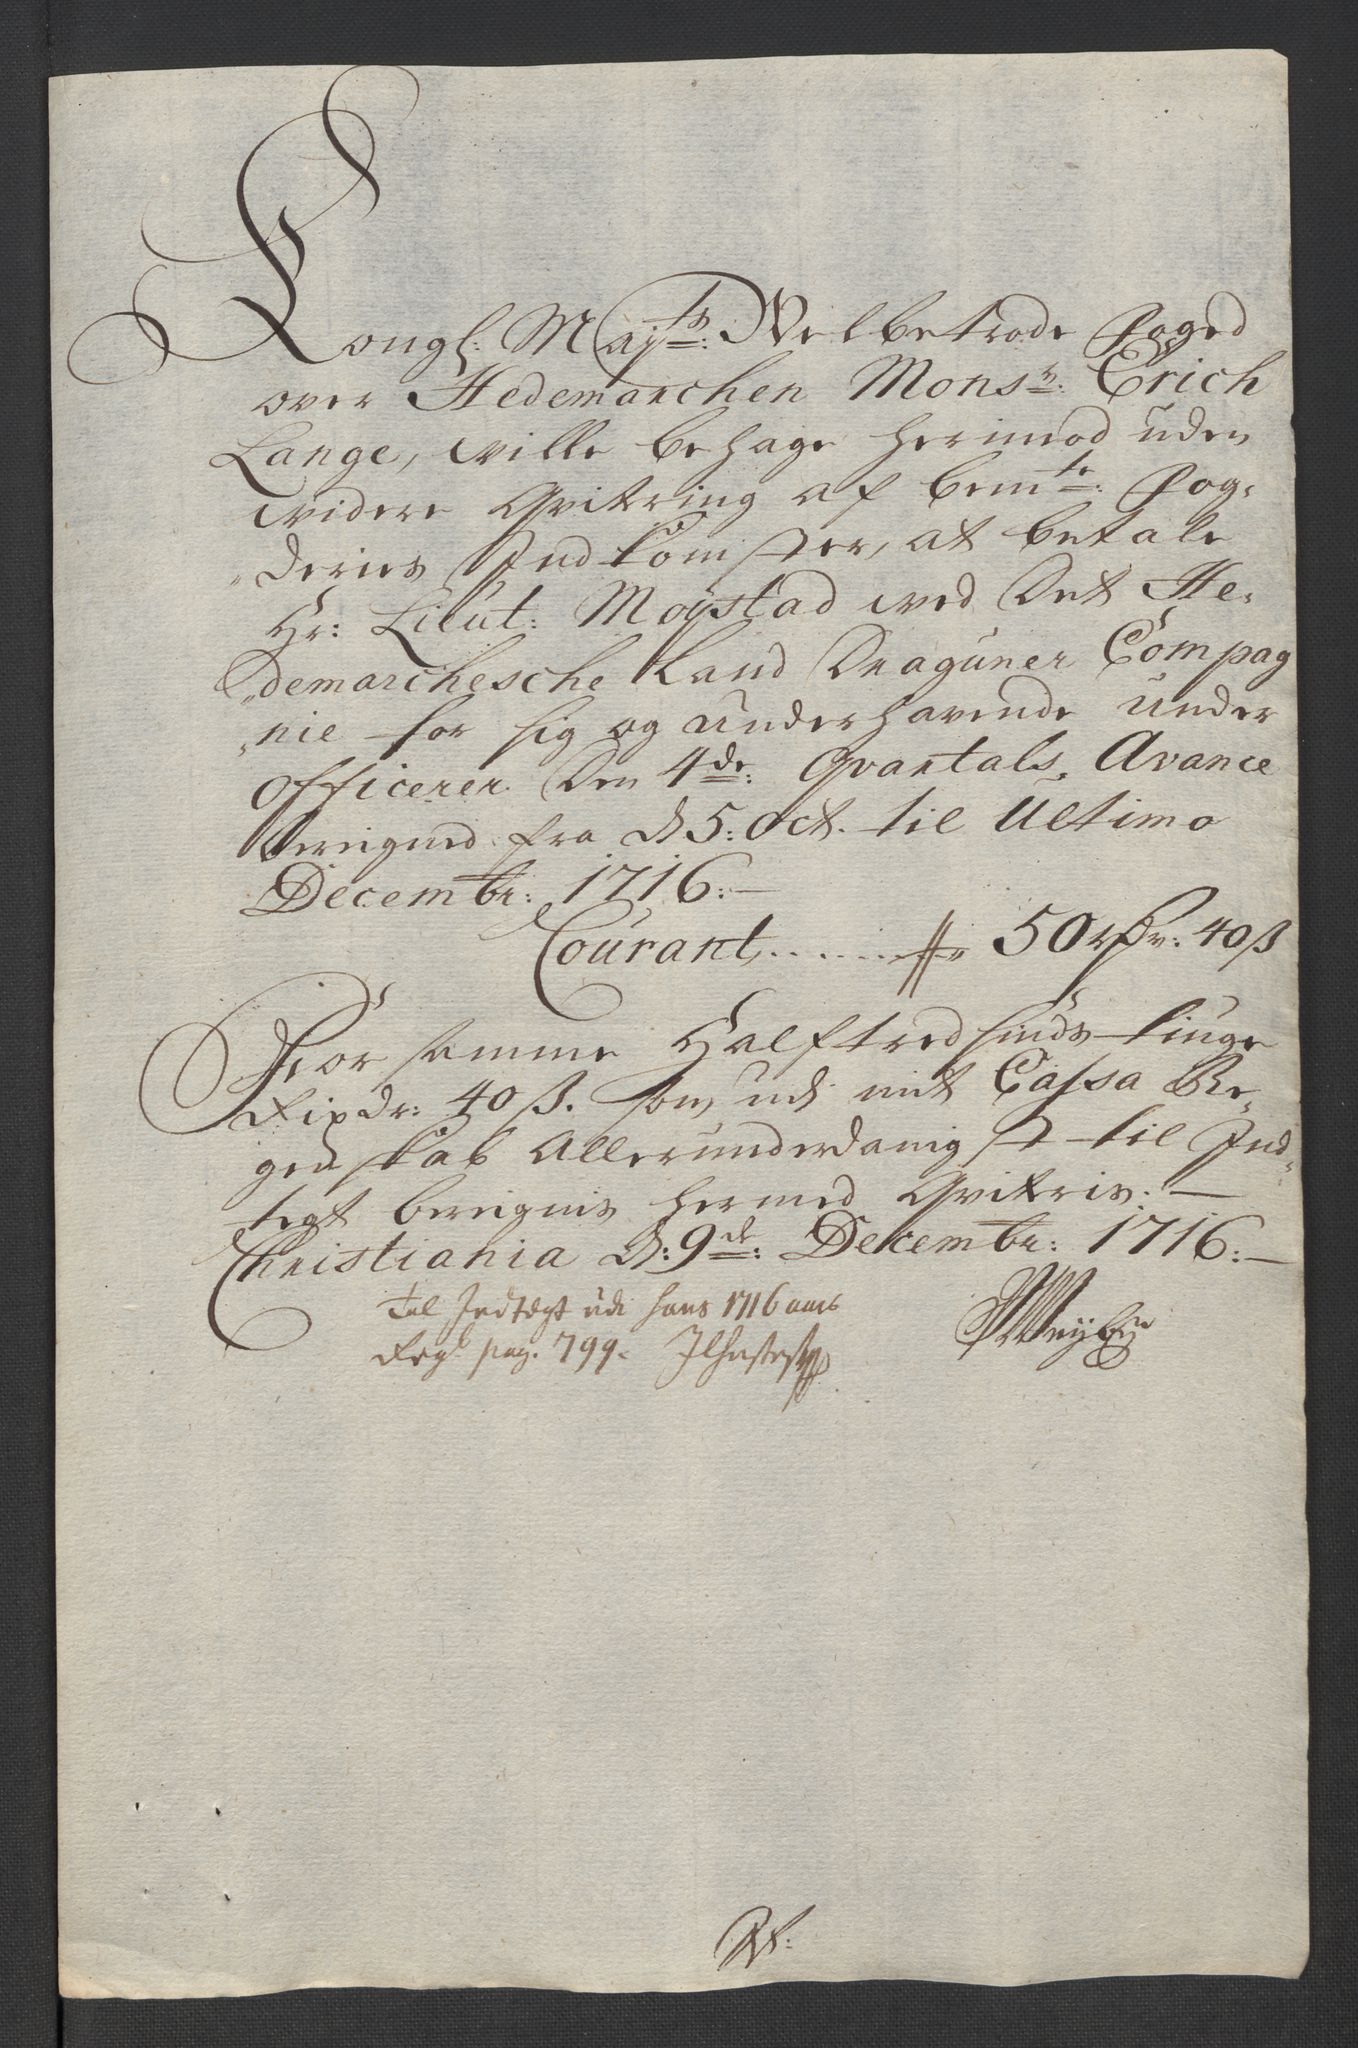 Kongl: Maÿ:ts Velbetrode Foged
over Hedemarchen Monsr: Erich
Lange, ville behage herimod uden
videre Qvittring af bemte: Fog-
deries Indkomster, at betale
Hr: Lieut: Moystad ved Det He-
demarchesche Land Draguner Compag
nie for sig og underhavende under
officerer Den 4de: Qvartals Avance
bereigned fra d 5: Oct. til Ultimo
Decembr: 1716:
Courant 50 rdr: 40 ß
For samme Halftredsinds-tiuge
Rixdr: 40 ß. som udj mit Cassa Re-
genskab Allerunderdanigst til Ind-
tegt bereignis hermed Qvitteris.
Christiania d: 9de: Decembr: 1716:
Til Indtægt udi hans 1716 aars
Regb pag. 799.